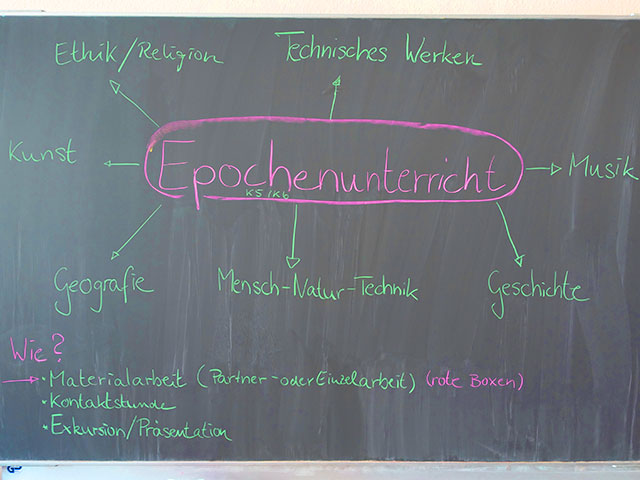 Ethik/Religion
Technisches Werken
Kunst
Epochenunterricht
K5/K6
Musik
Geografie
Mensch-Natur-Technik
Geschichte
Wie?
• Materialarbeit (Partner-oder Einzelarbeit) (rote Boxen)
• Kontaktstunde
• Exkursion/Präsentation